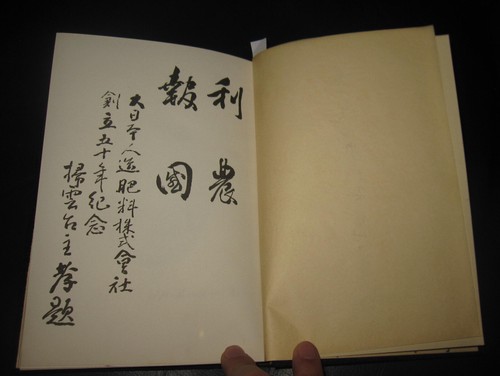 利農
報國
大日本人造肥料株式會社
創立五十年紀念
掃雲台主孝題